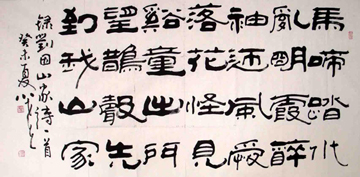 馬啼踏水
亂明霞醉
袖迎風受
落花怪見
谿童出門
望鵲聲先
到我山家
錄劉因山家詩一首
癸未夏